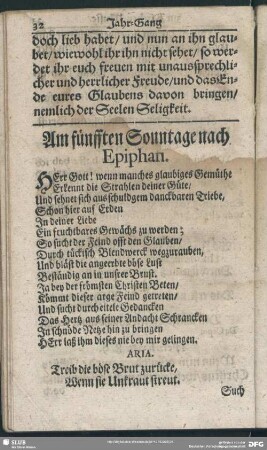 32 Jahr-Gang
doch lieb habet/ und nun an ihn glau-
bet/ wiewohl ihr ihn nicht sehet/ so wer-
det ihr euch freuen mit unaussprechli-
cher und herrlicher Freude/ und das En-
de eures Glaubens davon bringen/
nemlich der Seelen Seligkeit.
Am fünfften Sonntage nach
Epiphan.
HErr Gott! wenn manches glaubiges Gemüthe
Erkennt die Strahlen deiner Güte/
Und sehnet sich aus schuldgem danckbaren Triebe,
Schon hier auf Erden
In deiner Liebe
Ein fruchtbares Gewächs zu werden;
So sucht der Feind offt den Glauben/
Durch tückisch Blendwerck wegzurauben,
Und bläst die angeerbte böse Lust
Beständig an in unsrer Brust.
Ja bey der frömsten Christen Beten/
Kömmt dieser arge Feind getreten/
Und sucht durch eitele Gedancken
Das Hertz aus seiner Andacht Schrancken
In schnöde Netze hin zu bringen
HErr laß ihm dieses nie bey mir gelingen.
ARIA.
Treib die böse Brut zurücke,
Wenn sie Unkraut streut.
Such
SLUB
DFG